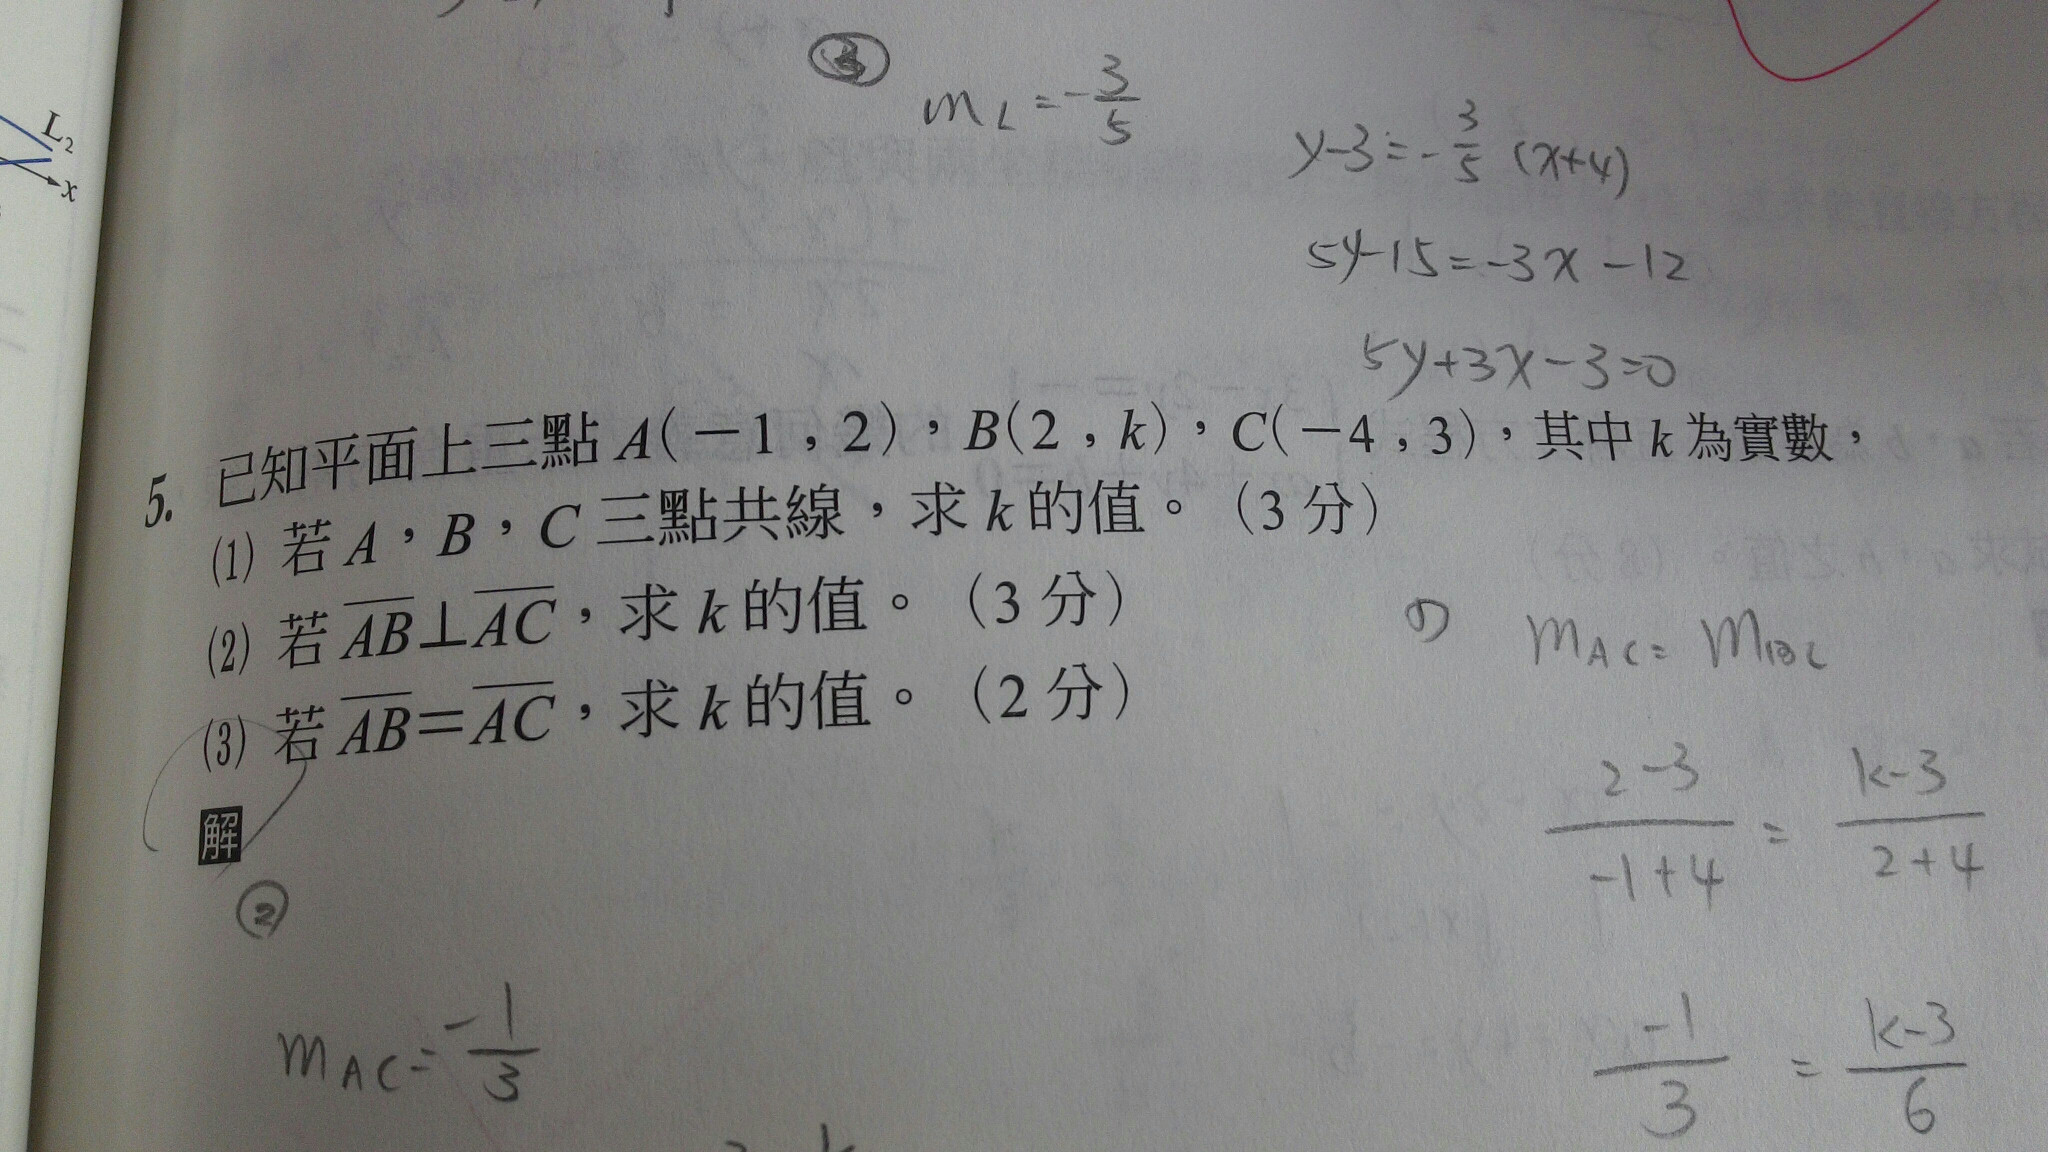 L₂
x
③
m_L = -3/5
y-3 = -3/5 (x+4)
5y-15=-3x-12
5y+3x-3=0
5. 已知平面上三點 A(-1,2),B(2,k),C(-4,3),其中 k 為實數,
(1) 若 A,B,C 三點共線,求 k 的值。(3 分)
(2) 若 AB⊥AC,求 k 的值。(3 分)
(3) 若 AB=AC,求 k 的值。(2 分)
解
m_AC = m_BC
2-3/-1+4 = k-3/2+4
-1/3 = k-3/6
②
m_AC = -1/3